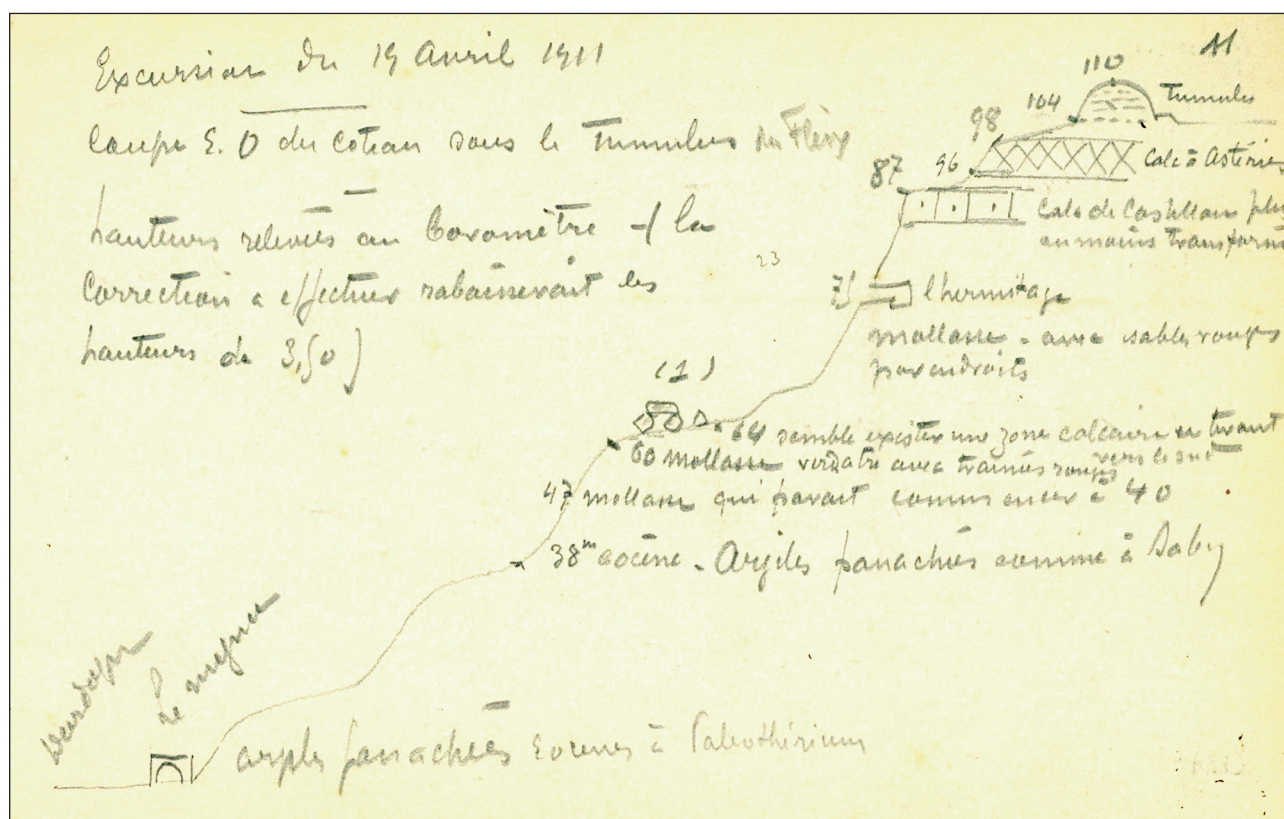 11
Excursion du 19 Avril 1911
Coupe E.O du Coteau sous le tumulus du Fleix
hauteurs relevées au Baromètre + (la
Correction a effectuer rabaisserait les
hauteurs de 3,50)
23
110
104
tumulus
98
96
Calc à Astéries
87
Calc de Castillon plus
ou moins transformé
75
l'hermitage
mollasse - avec sables rouges
par endroits
(1)
64 semble exister une zone calcaire
vers le sud
60 mollasse verdatre avec trainées rouges
47 mollasse qui parait commencer à 40
38m eocène - Argiles panachées comme à
Dordogne
Le
argiles panachées Eocenes à Paleothérium